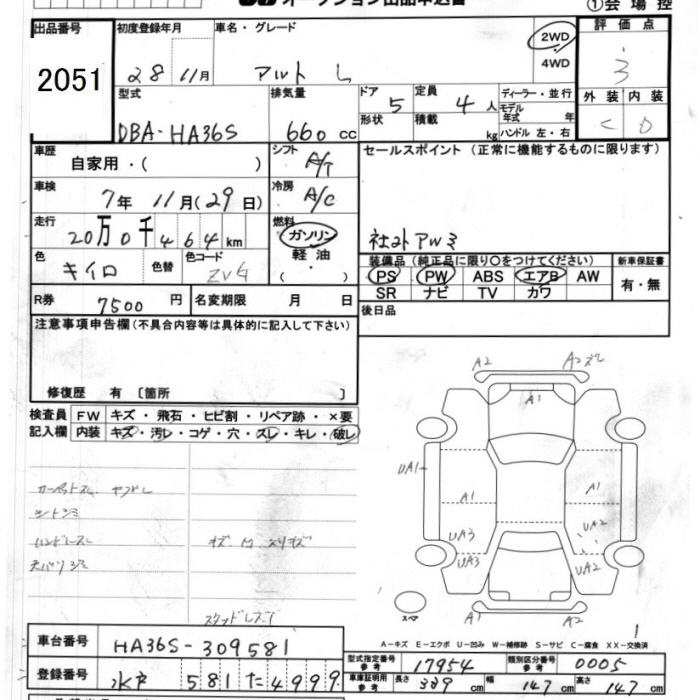 オークション出品申込書 ①会場控
出品番号 初度登録年月 車名・グレード 2WD 4WD 評価点
2051 28 11月 アルト L 3
型式 排気量 ドア 定員 ディーラー・並行 外装 内装
DBA-HA36S 660 cc 5 4人 モデル年式 年 C D
形状 積載 kg ハンドル 左・右
車歴 シフト セールスポイント (正常に機能するものに限ります)
自家用・( ) A/T
車検 冷房
7年 11月(29日) A/C
走行 燃料
20万0千464km ガソリン 社外アルミ
色 色替 色コード 軽油
キイロ ZVG ・( )
装備品 (純正品に限り○をつけてください) 新車保証書
PS PW ABS エアB AW 有・無
SR ナビ TV カワ
R券 7500円 名変期限 月 日 後日品
注意事項申告欄(不具合内容等は具体的に記入して下さい)
修復歴 有 [箇所 ]
検査員 FW キズ・飛石・ヒビ割・リペア跡・×要
記入欄 内装 キズ・汚レ・コゲ・穴・スレ・キレ・破レ
A2 A2ズレ
A1
UA1
A1 A1
UA3 UA2
UA3 UA2
カーペットスレ ヤブレ
シートシミ
ハンドルスレ キズ 凹 スリキズ
天バリシミ
スペア A1 A2
スタッドレス
A-キズ E-エクボ U-凹み W-補修跡 S-サビ C-腐食 XX-交換済
車台番号 HA36S-309581
型式指定番号 参考 17954 類別区分番号 参考 0005
登録番号 水戸 581 た 4999
車庫証明用 参考 長さ 339 cm 幅 147 cm 高さ 147 cm